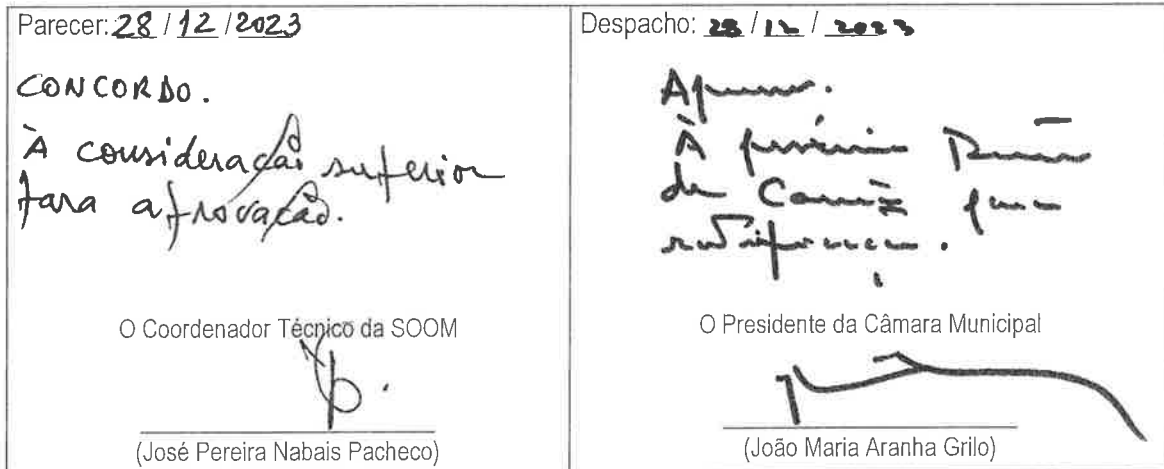 Parecer: 28 / 12 / 2023
CONCORDO.
À consideração superior
para aprovação.
O Coordenador Técnico da SOOM
(José Pereira Nabais Pacheco)
Despacho: 28 / 12 / 2023
Aprovo.
À próxima Reunião
de Câmara para
ratificação.
O Presidente da Câmara Municipal
(João Maria Aranha Grilo)